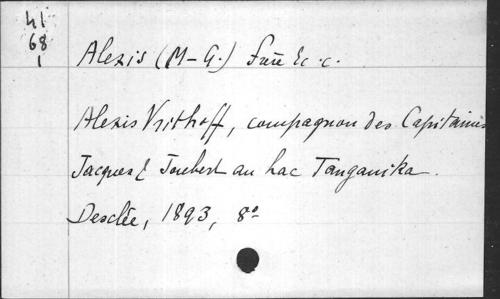 41
68
1
Alexis (M-G.)
Alexis Vrithoff, compagnon des Capitaines
Jacques & Joubert au Lac Tanganika.
Desclée, 1893, 8°